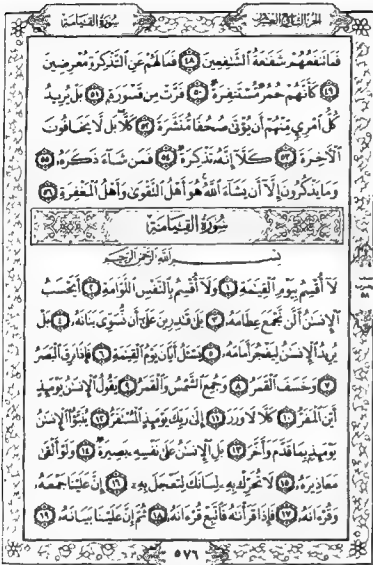 سُورَةُ الْقِيَامَةِ
فَمَا تَنفَعُهُمْ شَفَٰعَةُ ٱلشَّٰفِعِينَ ٤٨ فَمَا لَهُمْ عَنِ ٱلتَّذْكِرَةِ مُعْرِضِينَ
٤٩ كَأَنَّهُمْ حُمُرٌ مُّسْتَنفِرَةٌ ٥٠ فَرَّتْ مِن قَسْوَرَةٍ ٥١ بَلْ يُرِيدُ
كُلُّ ٱمْرِئٍ مِّنْهُمْ أَن يُؤْتَىٰ صُحُفًا مُّنَشَّرَةً ٥٢ كَلَّا بَل لَّا يَخَافُونَ
ٱلْءَاخِرَةَ ٥٣ كَلَّآ إِنَّهُۥ تَذْكِرَةٌ ٥٤ فَمَن شَآءَ ذَكَرَهُۥ ٥٥
وَمَا يَذْكُرُونَ إِلَّآ أَن يَشَآءَ ٱللَّهُ هُوَ أَهْلُ ٱلتَّقْوَىٰ وَأَهْلُ ٱلْمَغْفِرَةِ ٥٦
سُورَةُ الْقِيَامَةِ
بِسْمِ ٱللَّهِ ٱلرَّحْمَٰنِ ٱلرَّحِيمِ
لَآ أُقْسِمُ بِيَوْمِ ٱلْقِيَٰمَةِ ١ وَلَآ أُقْسِمُ بِٱلنَّفْسِ ٱللَّوَّامَةِ ٢ أَيَحْسَبُ
ٱلْإِنسَٰنُ أَلَّن نَّجْمَعَ عِظَامَهُۥ ٣ بَلَىٰ قَٰدِرِينَ عَلَىٰٓ أَن نُّسَوِّىَ بَنَانَهُۥ ٤ بَلْ
يُرِيدُ ٱلْإِنسَٰنُ لِيَفْجُرَ أَمَامَهُۥ ٥ يَسْـَٔلُ أَيَّانَ يَوْمُ ٱلْقِيَٰمَةِ ٦ فَإِذَا بَرِقَ ٱلْبَصَرُ
٧ وَخَسَفَ ٱلْقَمَرُ ٨ وَجُمِعَ ٱلشَّمْسُ وَٱلْقَمَرُ ٩ يَقُولُ ٱلْإِنسَٰنُ يَوْمَئِذٍ
أَيْنَ ٱلْمَفَرُّ ١٠ كَلَّا لَا وَزَرَ ١١ إِلَىٰ رَبِّكَ يَوْمَئِذٍ ٱلْمُسْتَقَرُّ ١٢ يُنَبَّؤُا۟ ٱلْإِنسَٰنُ
يَوْمَئِذٍۭ بِمَا قَدَّمَ وَأَخَّرَ ١٣ بَلِ ٱلْإِنسَٰنُ عَلَىٰ نَفْسِهِۦ بَصِيرَةٌ ١٤ وَلَوْ أَلْقَىٰ
مَعَاذِيرَهُۥ ١٥ لَا تُحَرِّكْ بِهِۦ لِسَانَكَ لِتَعْجَلَ بِهِۦٓ ١٦ إِنَّ عَلَيْنَا جَمْعَهُۥ
وَقُرْءَانَهُۥ ١٧ فَإِذَا قَرَأْنَٰهُ فَٱتَّبِعْ قُرْءَانَهُۥ ١٨ ثُمَّ إِنَّ عَلَيْنَا بَيَانَهُۥ ١٩
٥٧٦